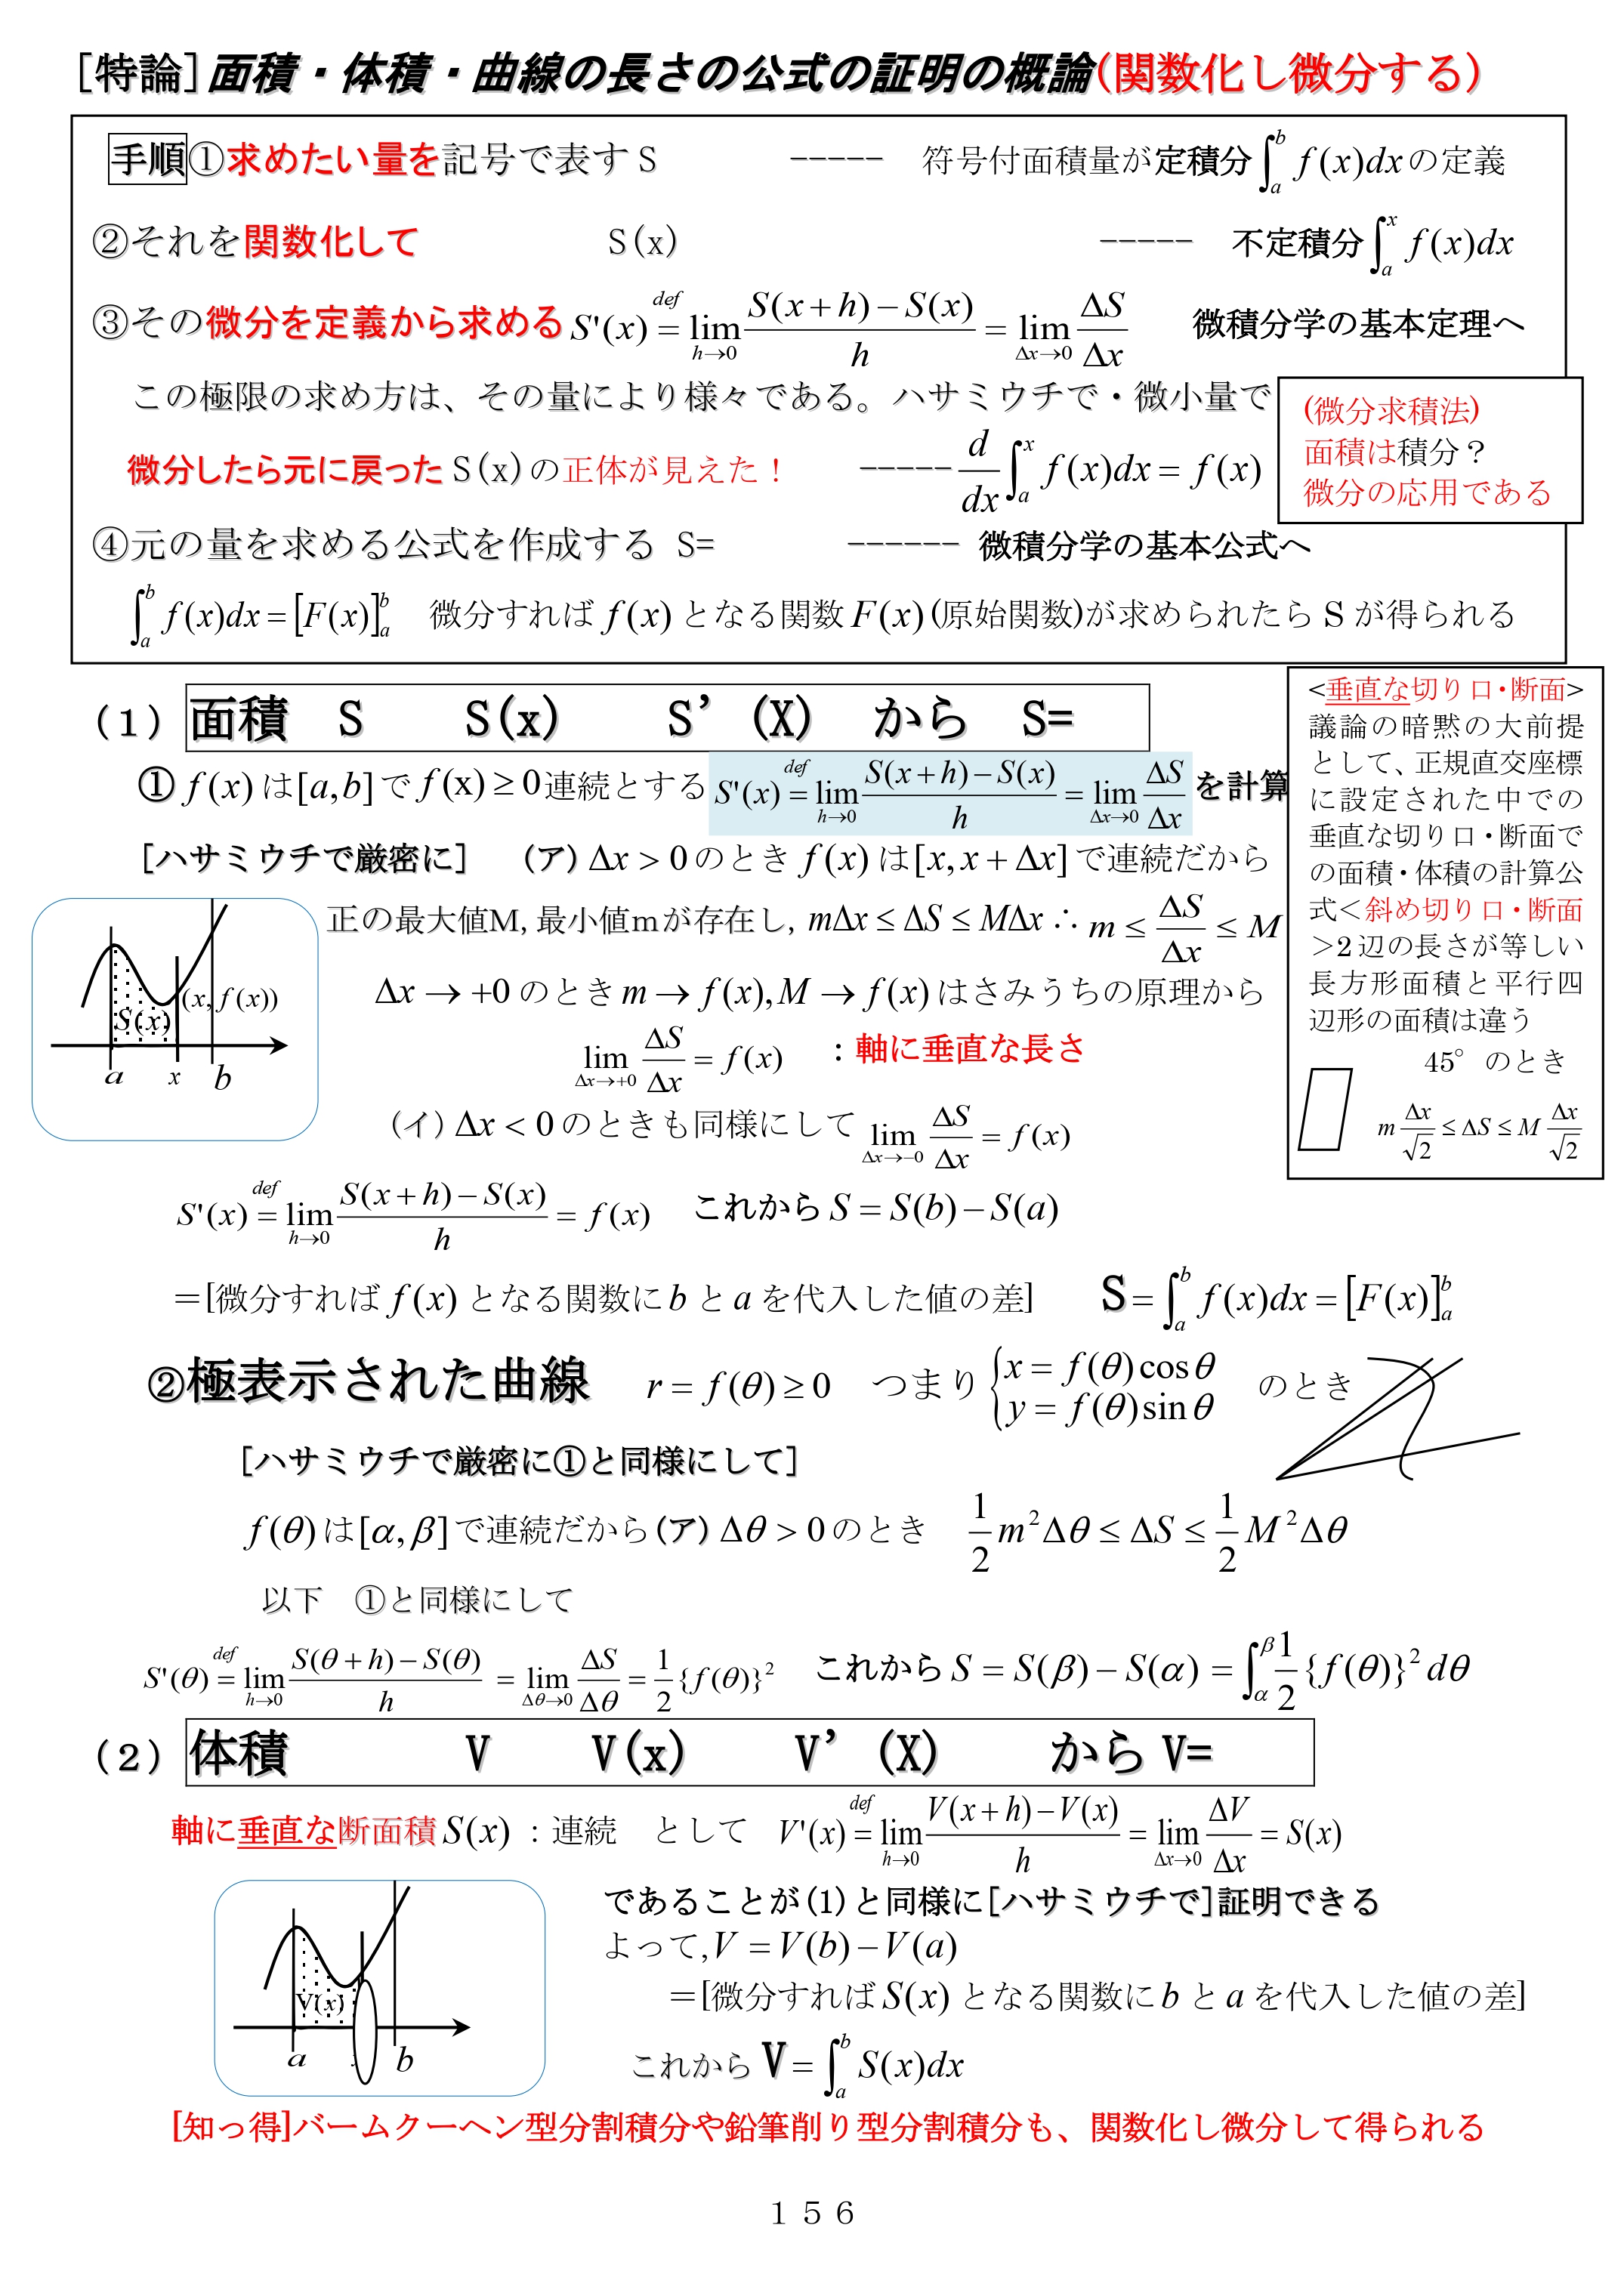 [特論]面積・体積・曲線の長さの公式の証明の概論(関数化し微分する)
手順①求めたい量を記号で表す S ----- 符号付面積量が定積分∫_a^b f(x)dx の定義
②それを関数化して S(x) ----- 不定積分∫_a^x f(x)dx
③その微分を定義から求める S'(x) =^{def} lim_{h→0} (S(x+h)−S(x))/h = lim_{Δx→0} ΔS/Δx 微積分学の基本定理へ
この極限の求め方は、その量により様々である。ハサミウチで・微小量で
微分したら元に戻った S(x)の正体が見えた！ ----- d/dx ∫_a^x f(x)dx = f(x)
(微分求積法)
面積は積分？
微分の応用である
④元の量を求める公式を作成する S= ------ 微積分学の基本公式へ
∫_a^b f(x)dx = [F(x)]_a^b 微分すれば f(x) となる関数 F(x) (原始関数)が求められたら S が得られる
(1) 面積 S S(x) S’(X) から S=
① f(x) は[a,b]で f(x) ≥ 0 連続とする S'(x) =^{def} lim_{h→0} (S(x+h)−S(x))/h = lim_{Δx→0} ΔS/Δx を計算
[ハサミウチで厳密に] (ア) Δx > 0 のとき f(x) は[x, x+Δx]で連続だから
正の最大値M, 最小値mが存在し, mΔx ≤ ΔS ≤ MΔx ∴ m ≤ ΔS/Δx ≤ M
Δx → +0 のとき m → f(x), M → f(x) はさみうちの原理から
lim_{Δx→+0} ΔS/Δx = f(x) ：軸に垂直な長さ
(イ) Δx < 0 のときも同様にして lim_{Δx→−0} ΔS/Δx = f(x)
S(x) (x, f(x))
a x b
<垂直な切り口・断面>
議論の暗黙の大前提
として、正規直交座標
に設定された中での
垂直な切り口・断面で
の面積・体積の計算公
式＜斜め切り口・断面
＞2辺の長さが等しい
長方形面積と平行四
辺形の面積は違う
45° のとき
m Δx/√2 ≤ ΔS ≤ M Δx/√2
S'(x) =^{def} lim_{h→0} (S(x+h)−S(x))/h = f(x) これから S = S(b)−S(a)
＝[微分すれば f(x) となる関数に b と a を代入した値の差] S=∫_a^b f(x)dx = [F(x)]_a^b
②極表示された曲線 r = f(θ) ≥ 0 つまり { x = f(θ)cosθ
y = f(θ)sinθ のとき
[ハサミウチで厳密に①と同様にして]
f(θ) は[α,β]で連続だから(ア) Δθ > 0 のとき 1/2 m²Δθ ≤ ΔS ≤ 1/2 M²Δθ
以下 ①と同様にして
S'(θ) =^{def} lim_{h→0} (S(θ+h)−S(θ))/h = lim_{Δθ→0} ΔS/Δθ = 1/2 {f(θ)}² これから S = S(β)−S(α) = ∫_α^β 1/2 {f(θ)}² dθ
(2) 体積 V V(x) V’(X) から V=
軸に垂直な断面積 S(x) ：連続 として V'(x) =^{def} lim_{h→0} (V(x+h)−V(x))/h = lim_{Δx→0} ΔV/Δx = S(x)
であることが(1)と同様に[ハサミウチで]証明できる
よって, V = V(b)−V(a)
＝[微分すれば S(x) となる関数に b と a を代入した値の差]
これから V=∫_a^b S(x)dx
V(x)
a b
[知っ得]バームクーヘン型分割積分や鉛筆削り型分割積分も、関数化し微分して得られる
１５６